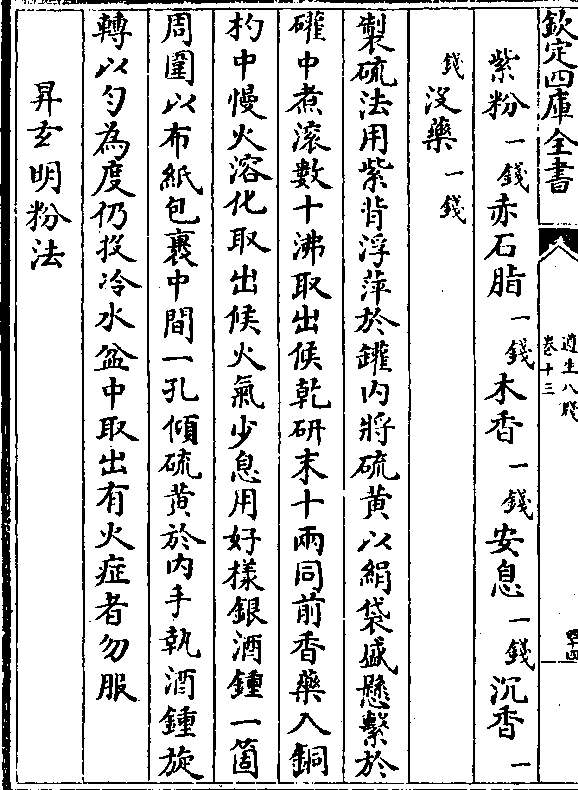 欽定四庫全書
遵生八牋
卷十三
四十四
紫粉一錢赤石脂一錢木香一錢安息一錢沉香一
錢没藥一錢
製硫法用紫背浮萍於罐内將硫黄以絹袋盛懸繫於
罐中煮滚數十沸取出候乾研末十兩同前香藥入銅
杓中慢火溶化取出候火氣少息用好樣銀酒鍾一箇
周圍以布紙包裹中間一孔傾硫黄於内手執酒鍾旋
轉以勺為度仍投冷水盆中取出有火症者勿服
昇玄明粉法